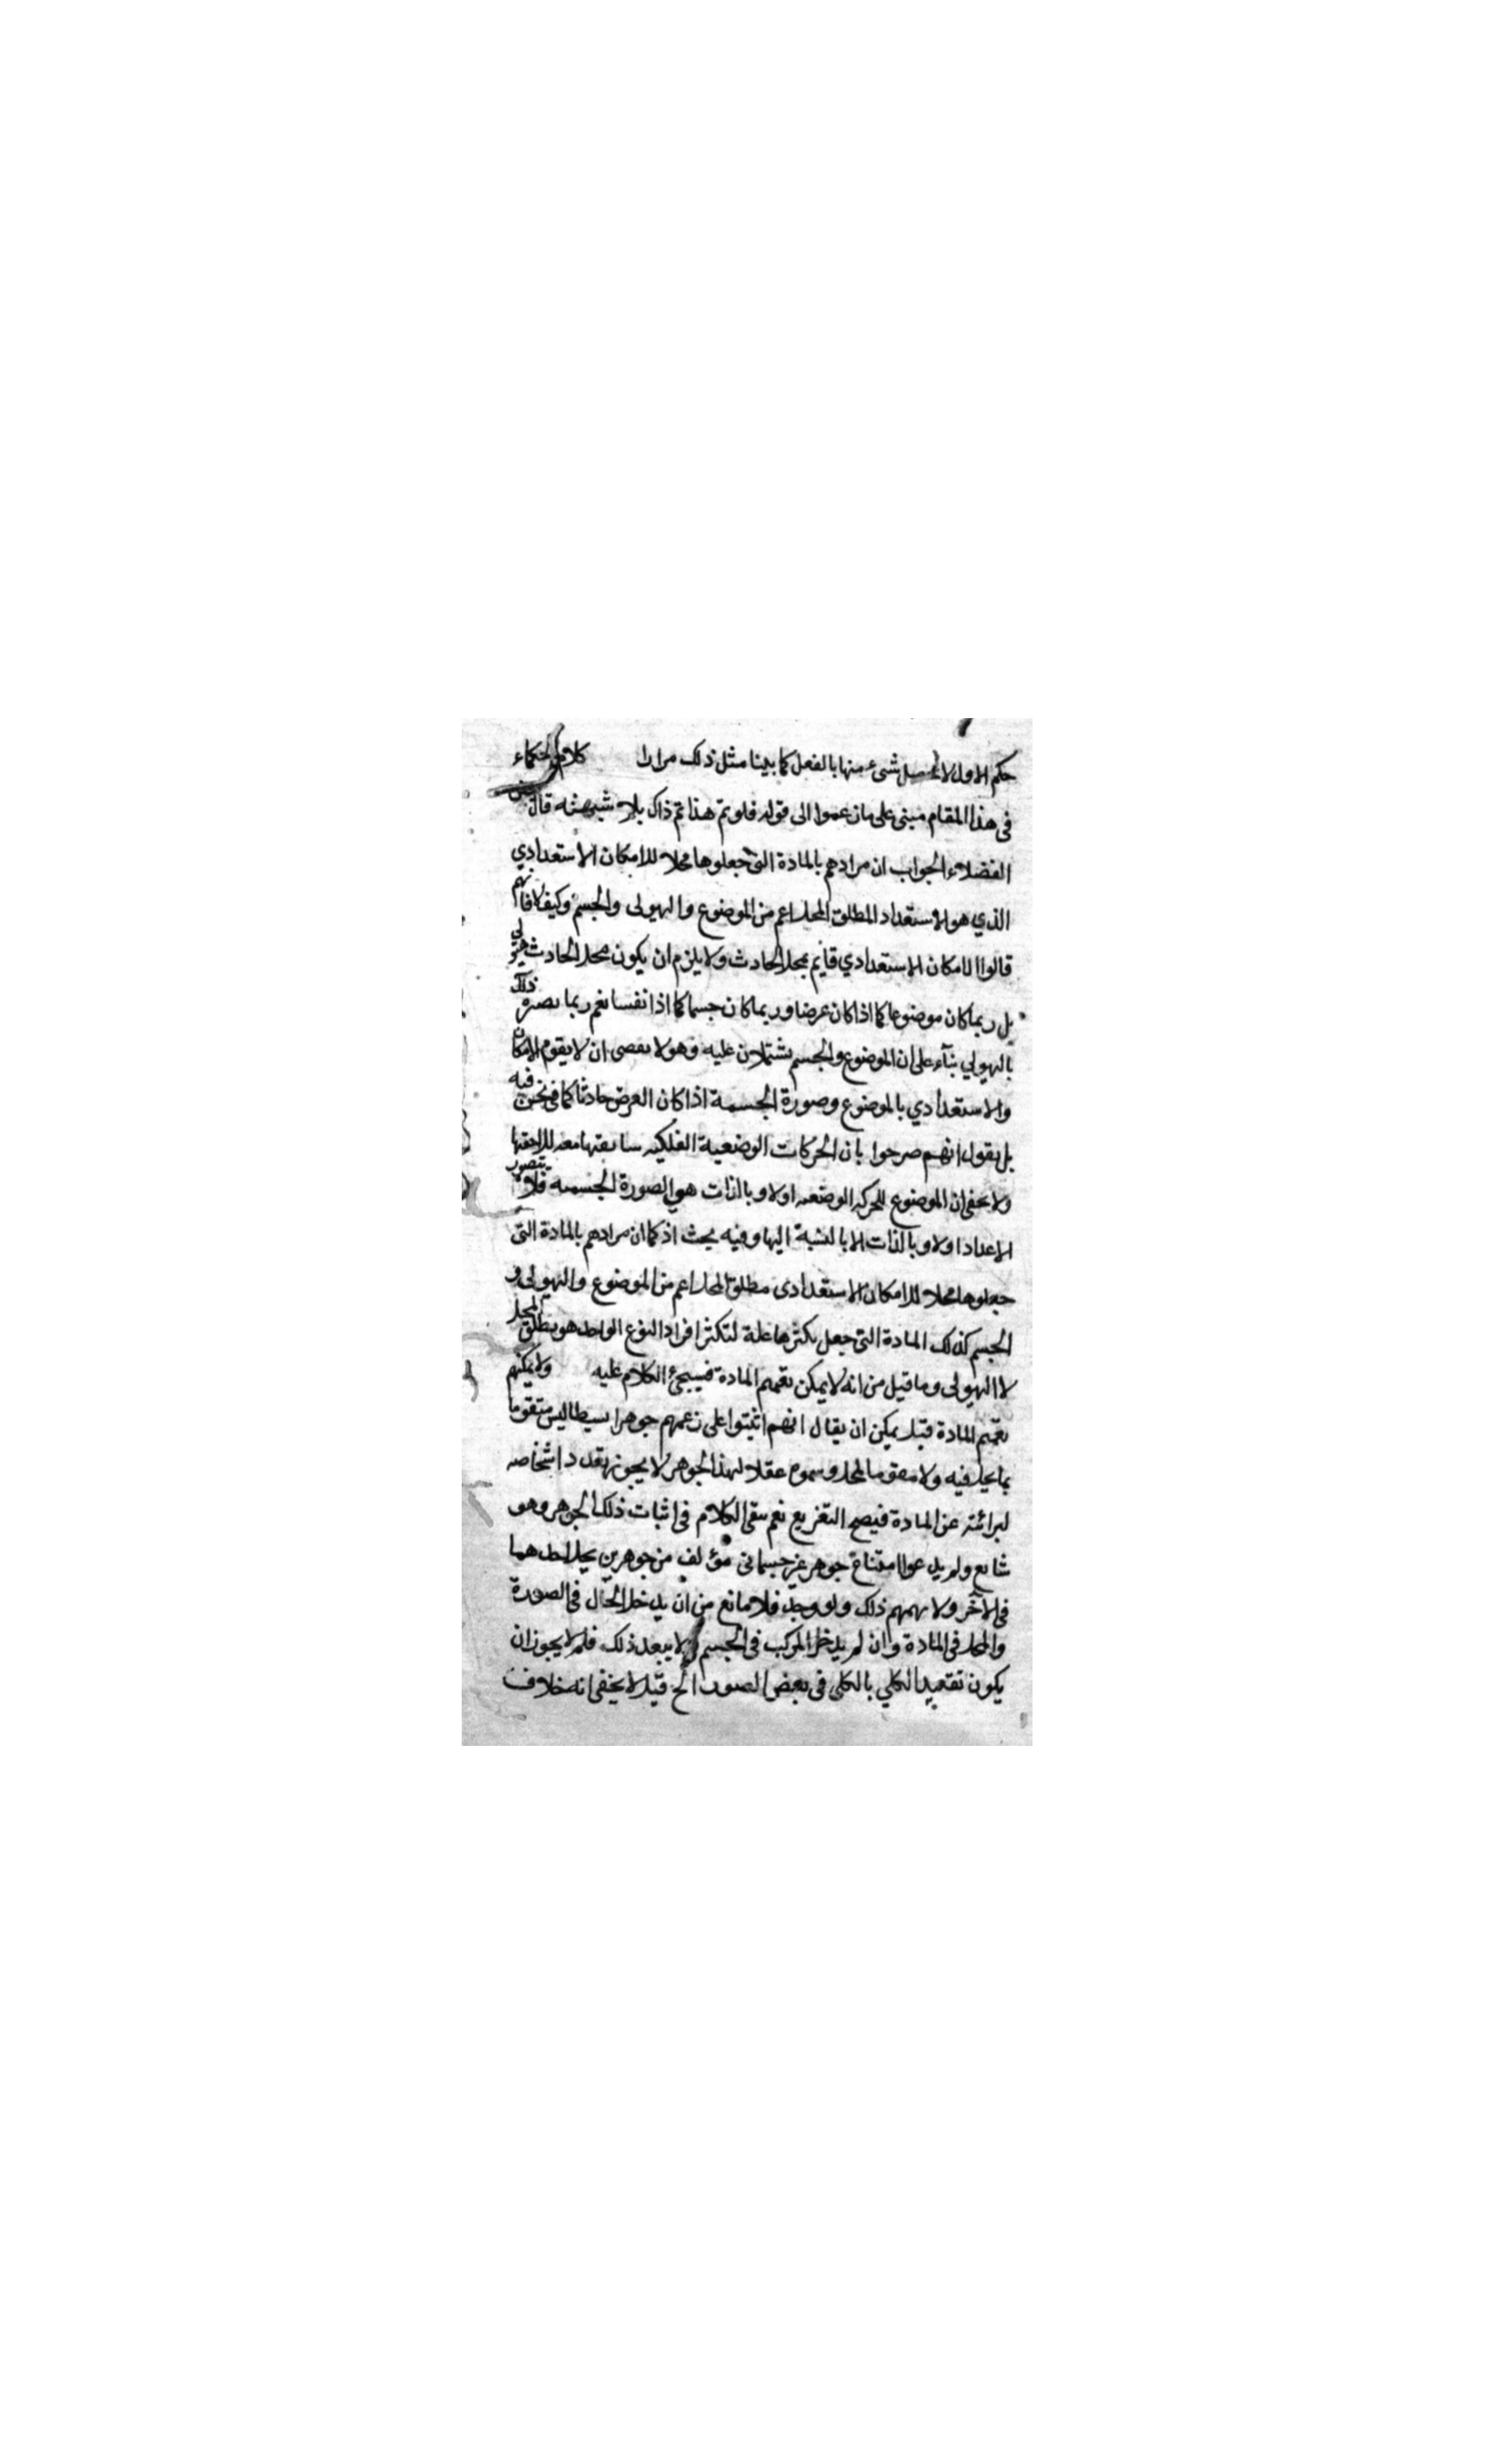 حكم الاول لا يحصل شئ منها بالفعل كما بينا مثل ذلك مرارا كلام الحكماء
فى هذا المقام مبنى على مازعموا الى قوله فلو تم هذا تم ذاك بلا شبهة قال بعض
الفضلاء الجواب ان مرادهم بالمادة التى جعلوها محلا للامكان الاستعدادي
الذي هو الاستعداد المطلق المحل اعم من الموضوع والهيولى والجسم وكيف لا فانهم
قالوا الامكان الاستعدادي قايم بمحل الحادث ولا يلزم ان يكون محل الحادث هيولى
بل ربما كان موضوعا كما اذا كان عرضا وربما كان جسما كما اذا نفسا نعم ربما ذلك
بالهيولي بنآء على ان الموضوع والجسم يشتملان عليه وهو لا ان لا يقوم الامكان
والاستعدادي بالموضوع وصورة الجسمية اذا كان العرض حادثا كما فى نحن فيه
بل نقول انهم صرحوا بان الحركات الوضعية الفلكيه سابقتها معده للاحقتها
ولا يخفى ان الموضوع للحركه الوضعيه اولا وبالذات هو الصورة الجسميه فلا يتصور
الاعداد اولا وبالذات الا بالنسبة اليها وفيه بحث اذ كما ان مرادهم بالمادة التى
جعلوها محلا للامكان الاستعدادى مطلق المحل اعم من الموضوع والهيولى و
الجسم كذلك المادة التى جعل تكثرها علة لتكثر افراد النوع الواحد هو مطلق المحل
لا الهيولى وما قيل من انه لا يمكن تعميم المادة فسيجئ الكلام عليه ولا يمكنهم
تعميم المادة قيل يمكن ان يقال انهم اثبتوا على زعمهم جوهرا بسيطا ليس متقوما
بما يحل فيه ولا مقوما لمحل وسموه عقلا لهذا الجوهر لا يجوز تعدد اشخاصه
لبرائته عن المادة فيصح التفريع نعم يبقى الكلام فى اثبات ذلك الجوهر وهو
شايع ولم يدعوا امتناع جوهر غير جسمانى مؤلف من جوهرين يحل احدهما
فى الآخر ولا يهمهم ذلك ولو وجد فلا مانع من ان يدخل الحال فى الصورة
والمحل فى المادة وان لم يدخل المركب فى الجسم ولا يبعد ذلك فلم لا يجوز ان
يكون تقييد الكلي بالكلى فى بعض الصور الخ قيل لا يخفى انه خلاف